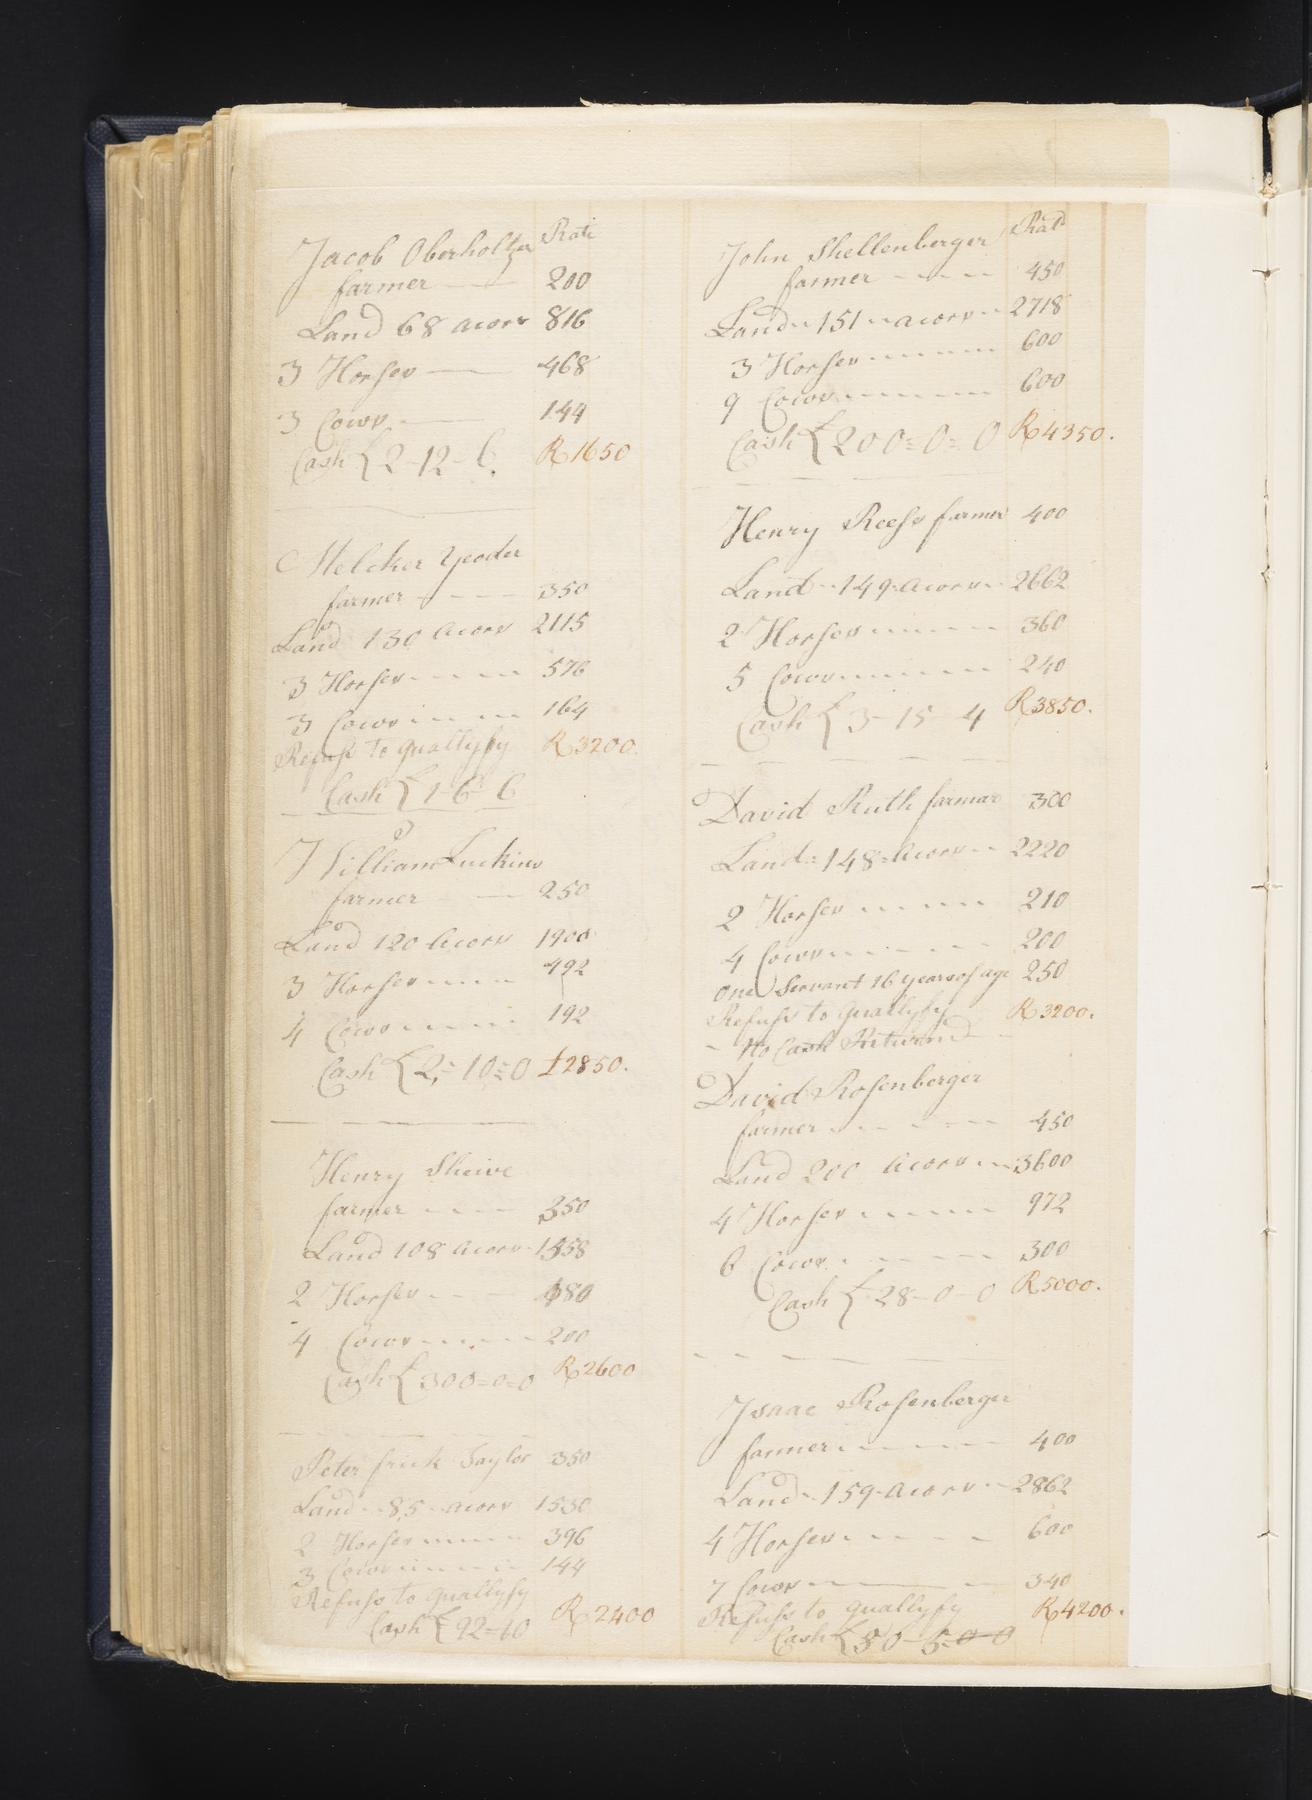 Jacob Oberholtzer Rate
farmer — 200
Land 68 acors 816
3 Horses — 468
3 Cows — 144
Cash £2-12-6 R1650
Melcher Yeoder
farmer - - - 350
Land 130 Acors 2115
3 Horses - - - - 576
3 Cows - - - 164
Refuse to quallyfy R3200.
Cash £1-6-6
William Luckins
farmer — 250
Land 120 Acors 1900
3 Horses - - - - 492
4 Cows - - - - 192
Cash £2=10=0 £2850.
Henry Sheive
farmer - - - - 350
Land 108 Acors - 1858
2 Horses - - - 180
4 Cows - - - - 200
Cash £300=0=0 R2600
Peter frick Taylor 350
Land - 85 - acors 1530
2 Horses - - - - 396
3 Cows - - - - 144
Refuse to quallyfy
Cash £92=10 R2400
John Shellenberger Rate
farmer - - - - 450
Land - 151 - acors - 2718
3 Horses - - - - 600
9 Cows - - - - 600
Cash £200=0=0 R4350.
Henry Reese farmer 400
Land - 149 - Acors - 2662
2 Horses - - - - 360
5 Cows - - - - 240
Cash £3-15-4 R3850.
David Ruth farmar 300
Land = 148 = Acors - 2220
2 Horses - - - - 210
4 Cows - - - - 200
One Servant 16 years of age 250
Refuse to quallyfy R3200.
- No Cash Returnd -
David Rosenberger
farmer - - - - 450
Land 200 Acors - - 3600
4 Horses - - - - 972
6 Cows - - - - 300
Cash £28-0-0 R5000.
Isaac Rosenberger
farmer - - - - 400
Land - 159 - Acors - 2862
4 Horses - - - - 600
7 Cows - - - 340
Refuse to quallyfy R4200.
Cash £50-5-0-0